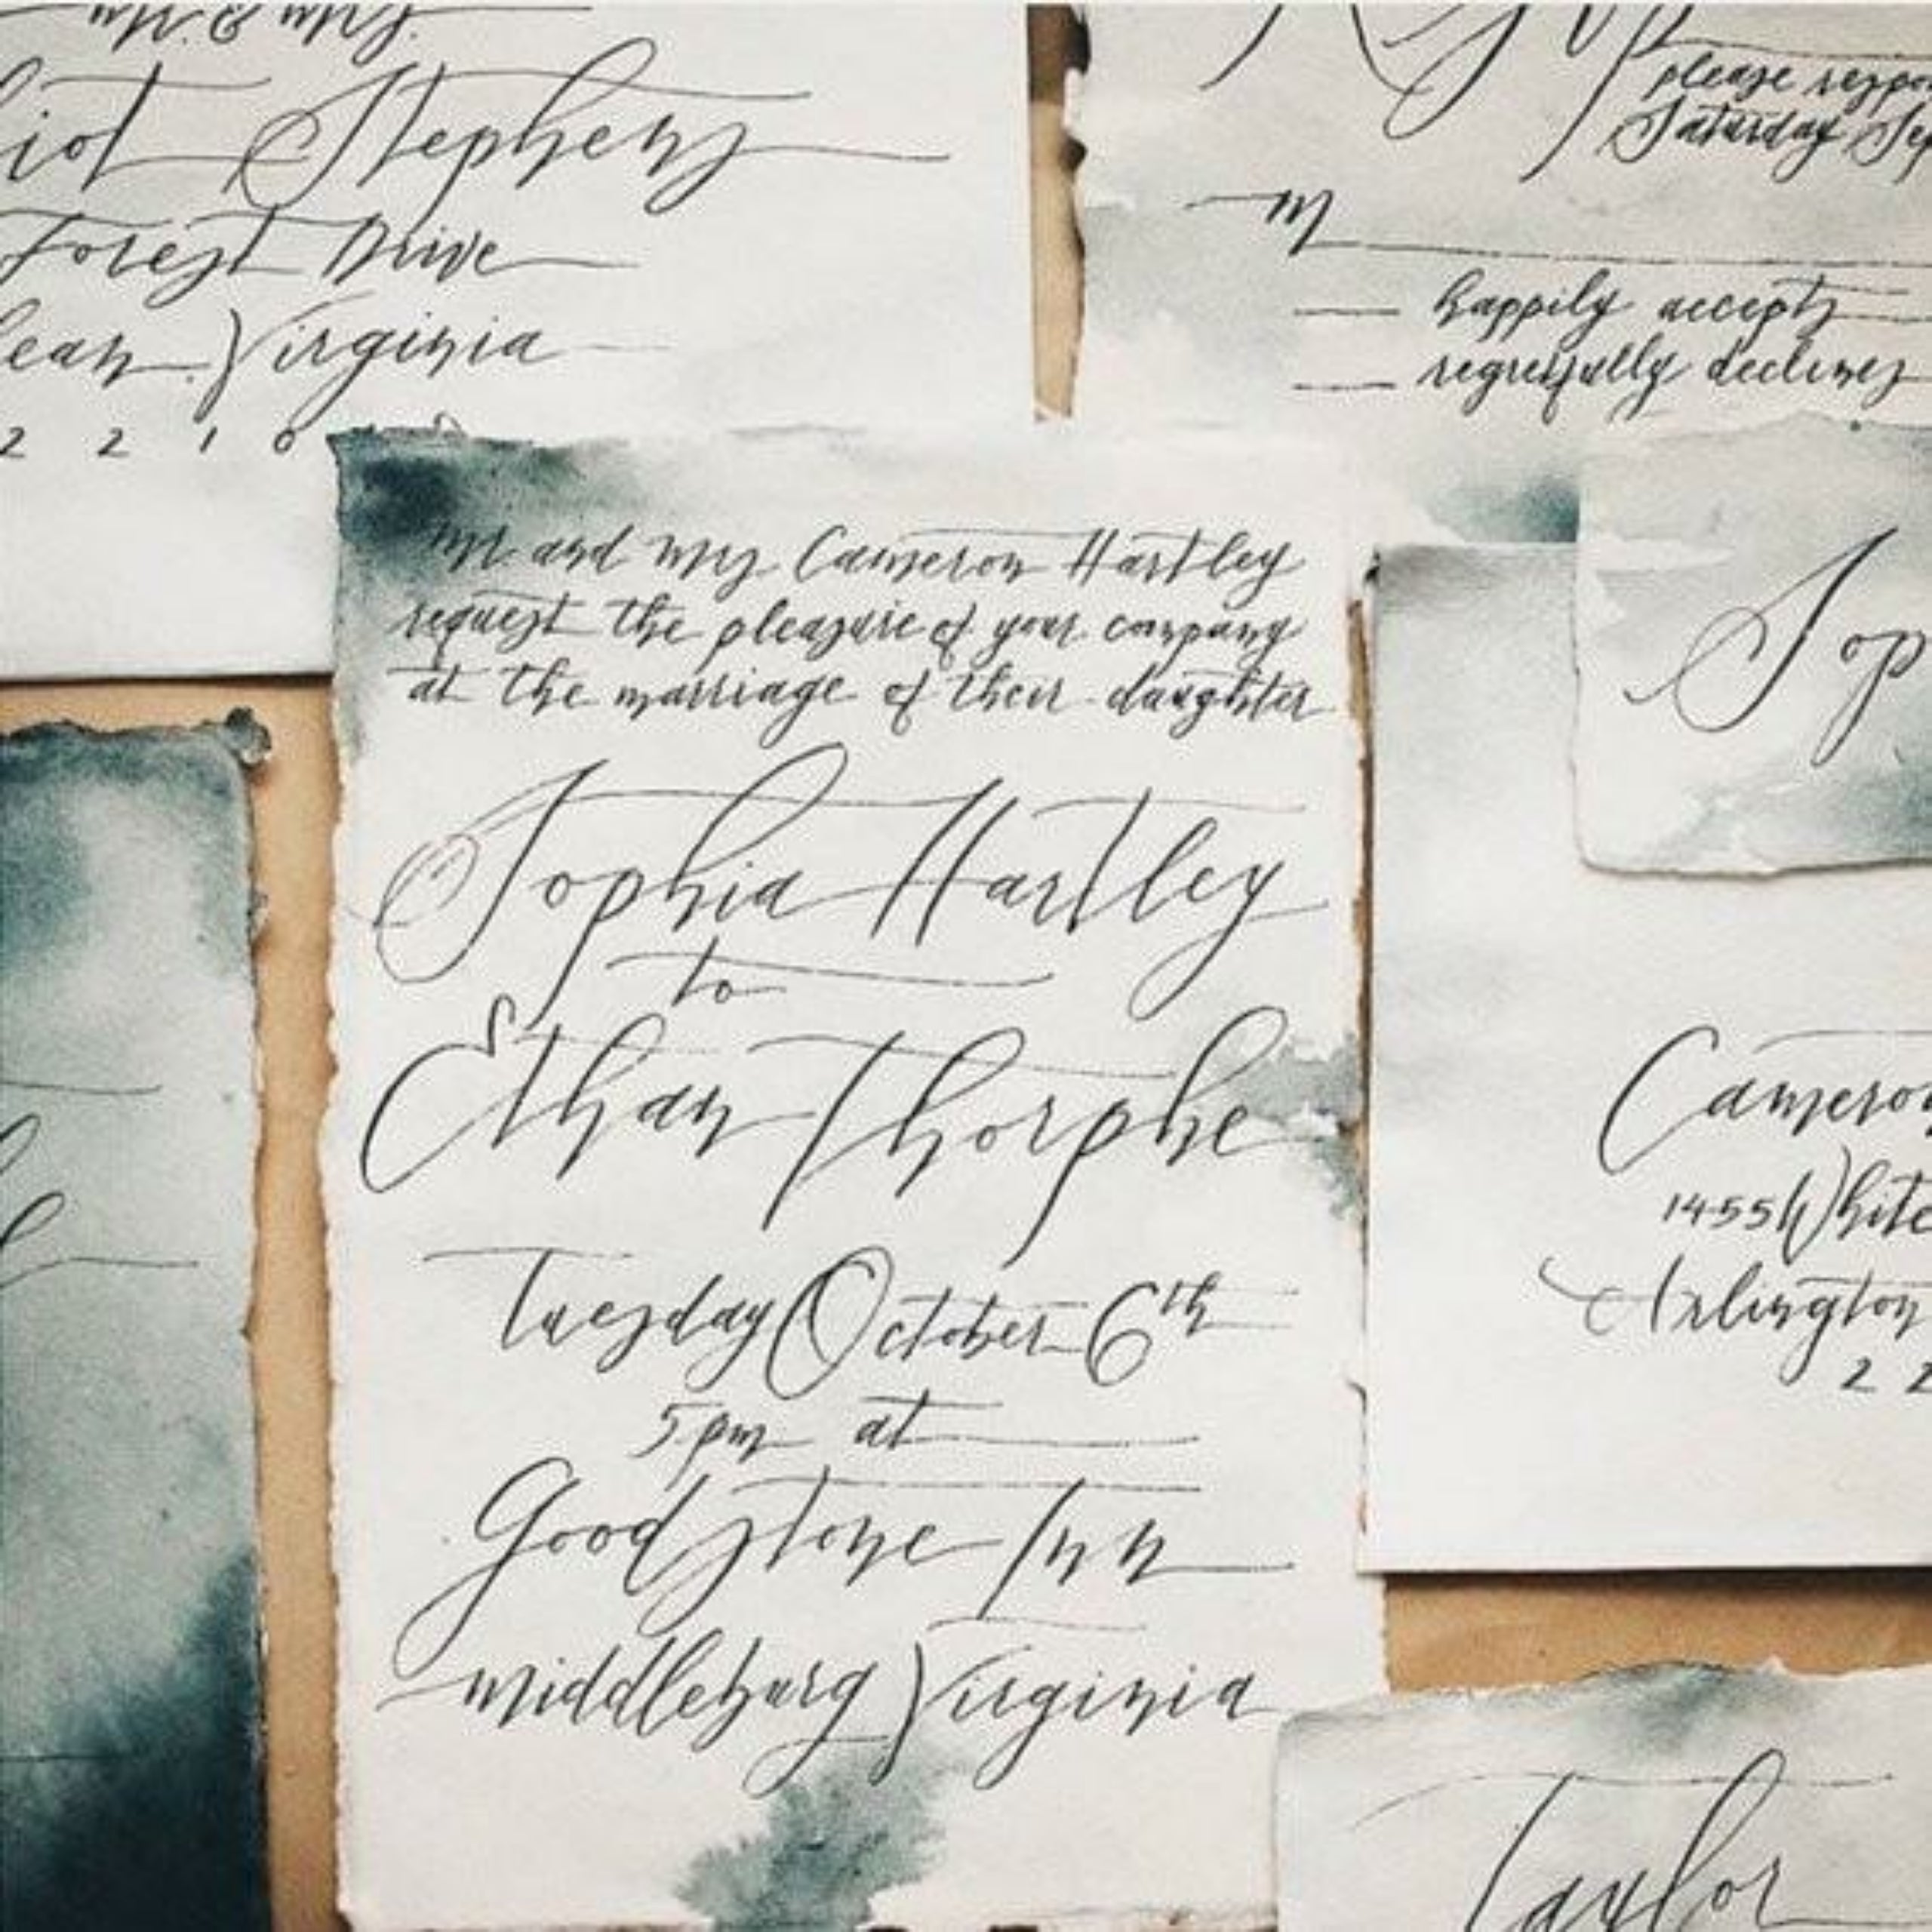 mr. & mrs.
Stephens
Forest Drive
Virginia
2 2 1 0
please
Saturday
M
happily accepts
regretfully declines
mr and mrs Cameron Hartley
request the pleasure of your company
at the marriage of their daughter
Sophia Hartley
to
Ethan Thorphe
Tuesday October 6th
5pm at
Goodstone Inn
middleburg Virginia
Sop
Cameron
1455 White
Arlington
2 2
Taylor